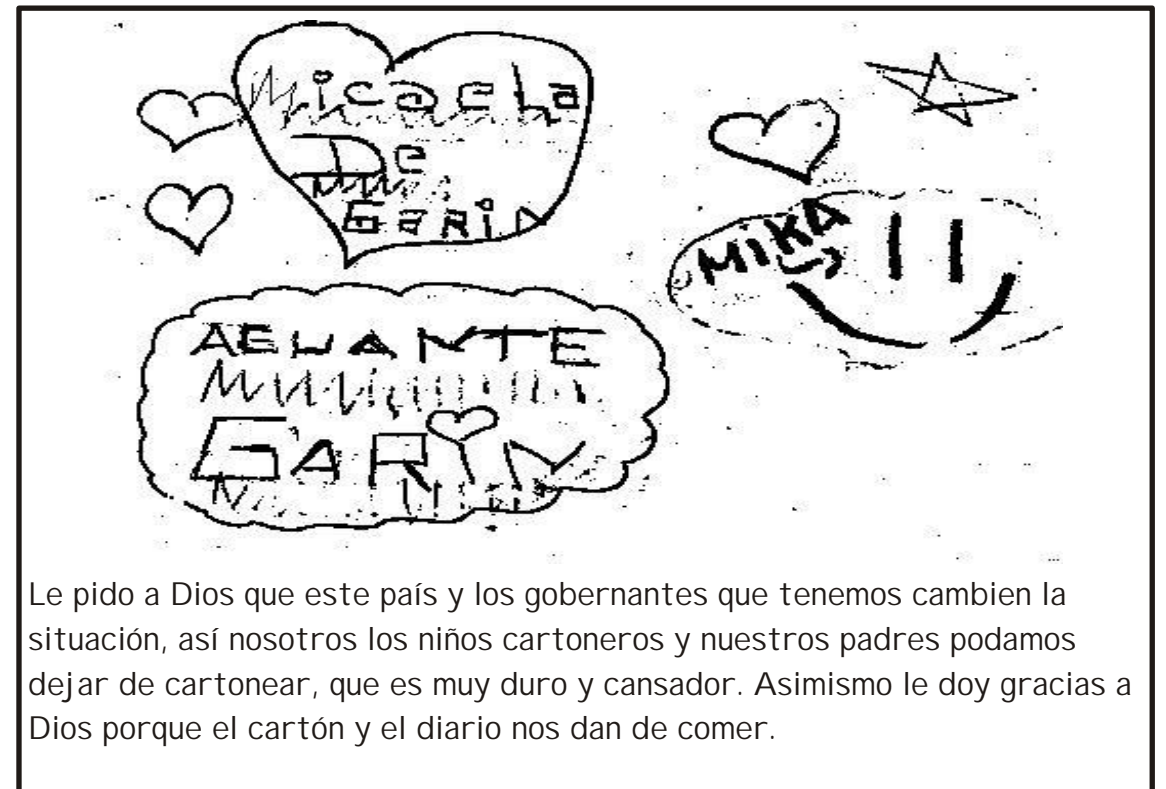 Micaela
De
GARIN
MIKA
AGUANTE
GARiN
Le pido a Dios que este país y los gobernantes que tenemos cambien la
situación, así nosotros los niños cartoneros y nuestros padres podamos
dejar de cartonear, que es muy duro y cansador. Asimismo le doy gracias a
Dios porque el cartón y el diario nos dan de comer.